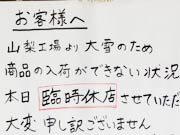 お客様へ
山梨工場より大雪のため
商品の入荷ができない状況
本日 臨時休店 させていただ
大変 申し訳ございません